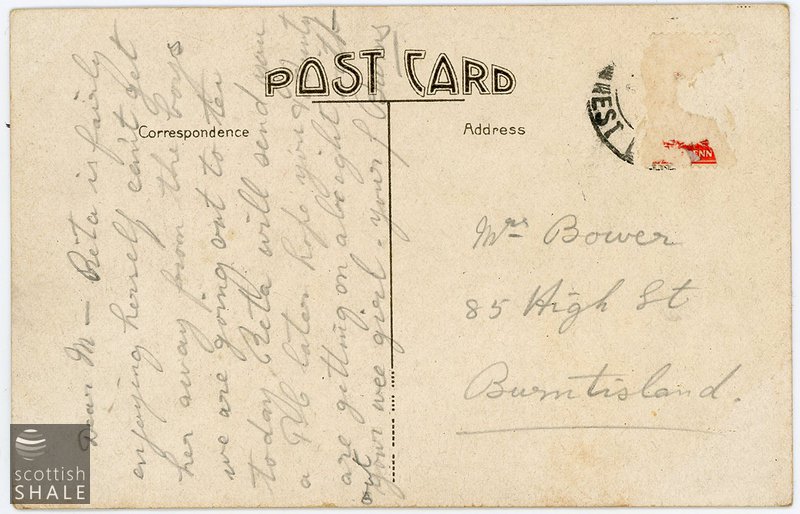 POST CARD
Correspondence
Address
WEST
ENN
Dear M — Rita is fairly
enjoying herself can't get
her away from the boys
we are going out to tea
today. Reta will send you
a P/C later hope you & aunty
are getting on alwright with
out
your wee girl. yours
Mrs Bower
85 High St
Burntisland.
scottish
SHALE